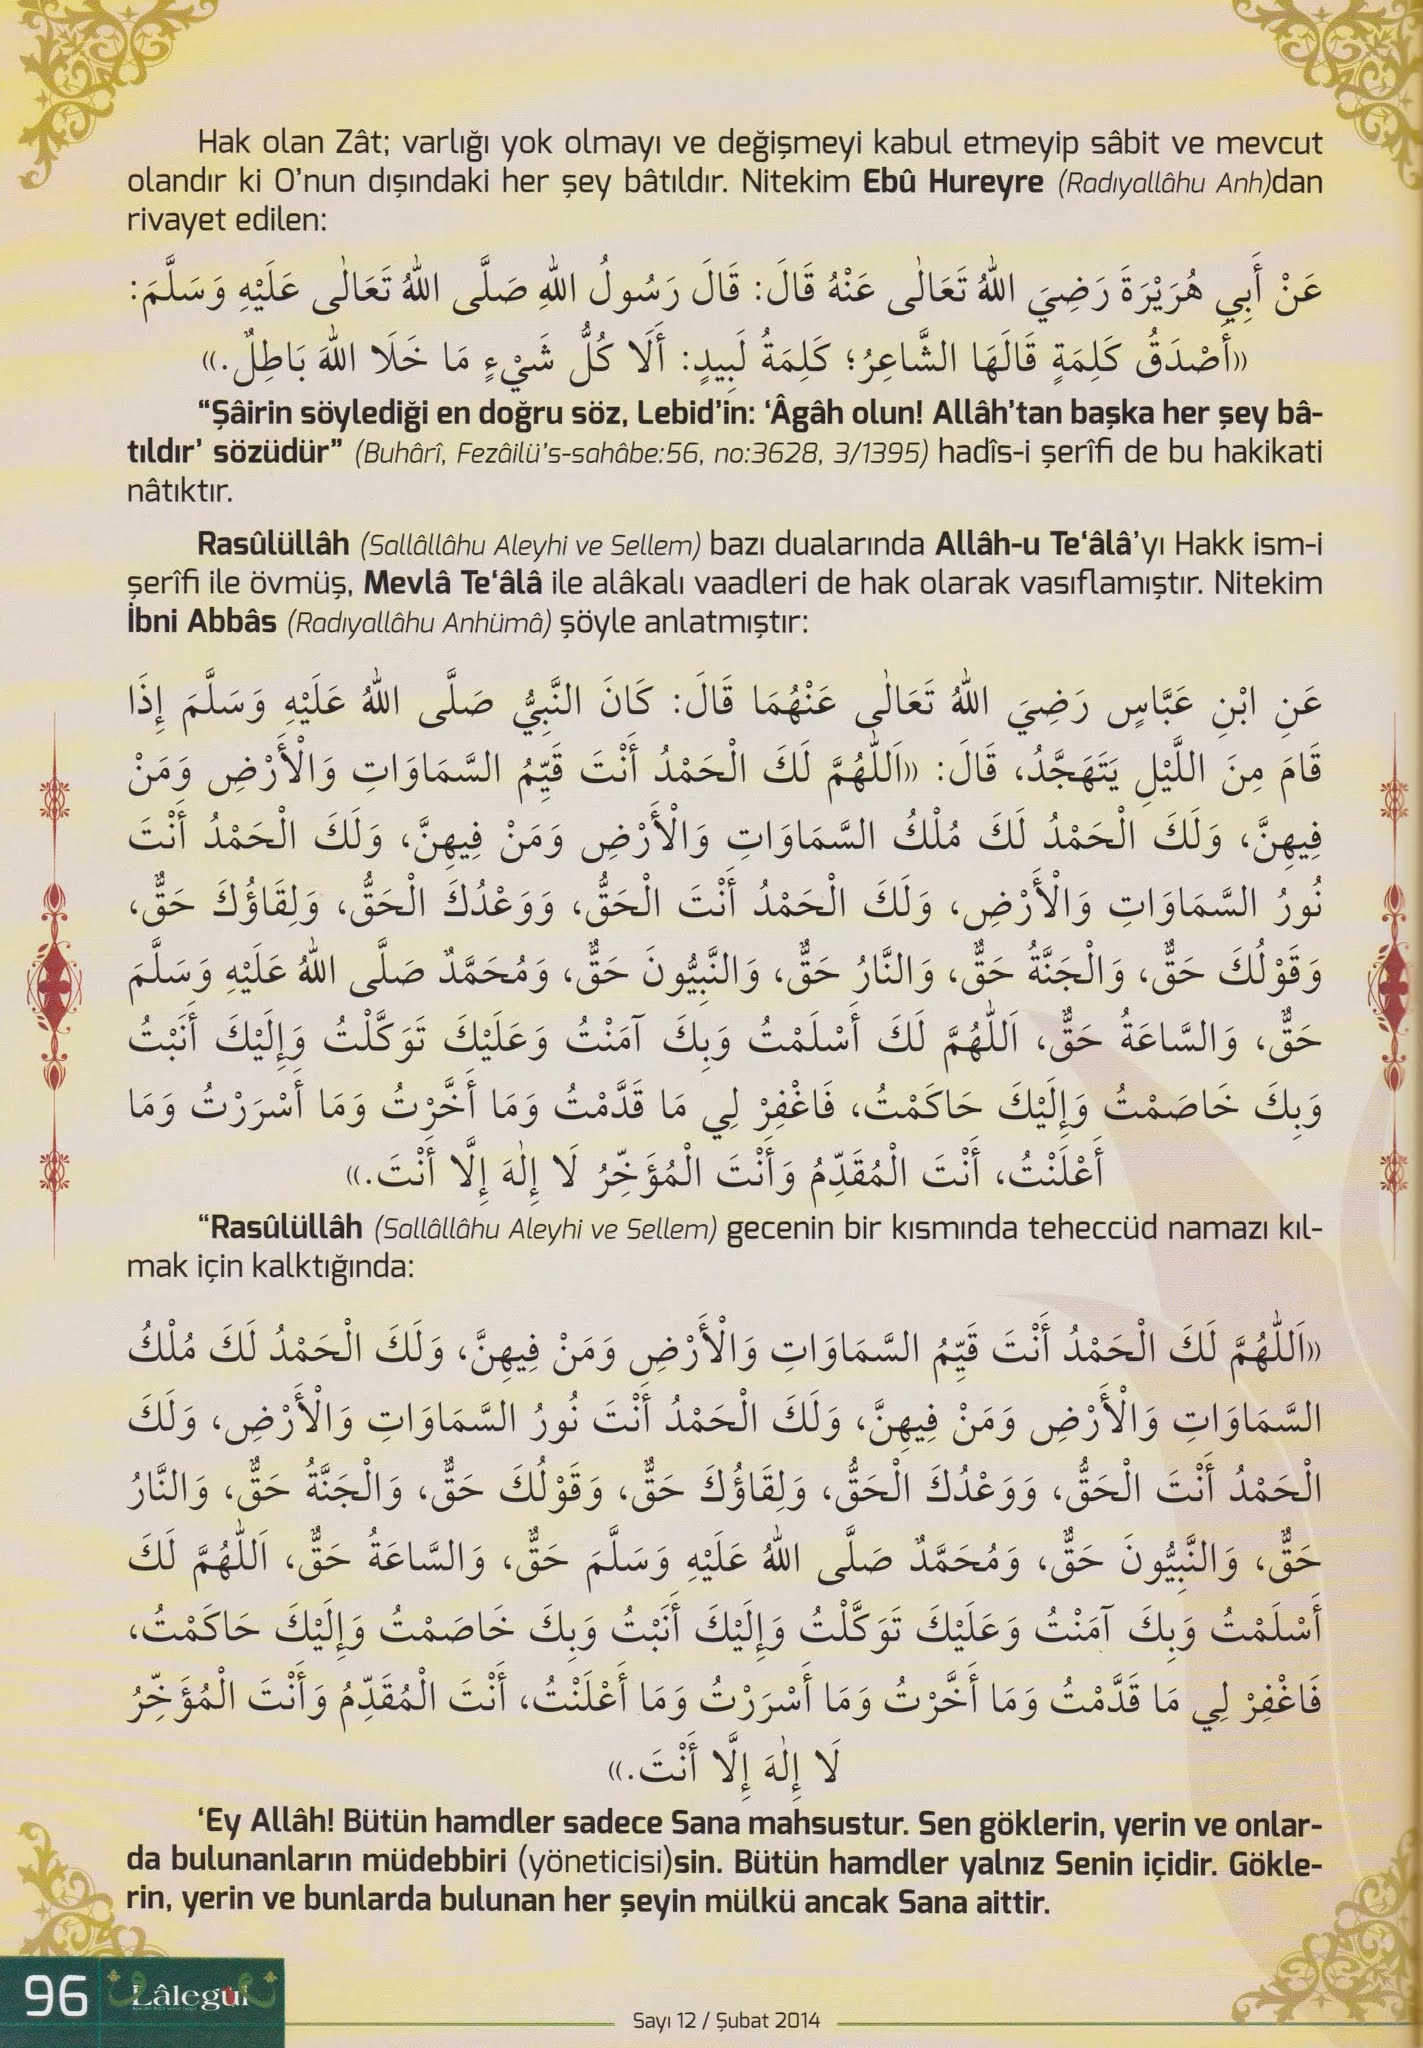 Hak olan Zât; varlığı yok olmayı ve değişmeyi kabul etmeyip sâbit ve mevcut
olandır ki O'nun dışındaki her şey bâtıldır. Nitekim Ebû Hureyre (Radıyallâhu Anh)dan
rivayet edilen:
عَنْ أَبِي هُرَيْرَةَ رَضِيَ اللهُ تَعَالٰى عَنْهُ قَالَ: قَالَ رَسُولُ اللهِ صَلَّى اللهُ تَعَالٰى عَلَيْهِ وَسَلَّمَ:
«أَصْدَقُ كَلِمَةٍ قَالَهَا الشَّاعِرُ؛ كَلِمَةُ لَبِيدٍ: أَلَا كُلُّ شَيْءٍ مَا خَلَا اللهَ بَاطِلٌ.»
“Şâirin söylediği en doğru söz, Lebid'in: ‘Âgâh olun! Allâh'tan başka her şey bâ-
tıldır’ sözüdür” (Buhârî, Fezâilü's-sahâbe:56, no:3628, 3/1395) hadîs-i şerîfi de bu hakikati
nâtıktır.
Rasûlüllâh (Sallâllâhu Aleyhi ve Sellem) bazı dualarında Allâh-u Te‘âlâ’yı Hakk ism-i
şerîfi ile övmüş, Mevlâ Te‘âlâ ile alâkalı vaadleri de hak olarak vasıflamıştır. Nitekim
İbni Abbâs (Radıyallâhu Anhümâ) şöyle anlatmıştır:
عَنِ ابْنِ عَبَّاسٍ رَضِيَ اللهُ تَعَالٰى عَنْهُمَا قَالَ: كَانَ النَّبِيُّ صَلَّى اللهُ عَلَيْهِ وَسَلَّمَ إِذَا
قَامَ مِنَ اللَّيْلِ يَتَهَجَّدُ، قَالَ: «اَللّٰهُمَّ لَكَ الْحَمْدُ أَنْتَ قَيِّمُ السَّمَاوَاتِ وَالْأَرْضِ وَمَنْ
فِيهِنَّ، وَلَكَ الْحَمْدُ لَكَ مُلْكُ السَّمَاوَاتِ وَالْأَرْضِ وَمَنْ فِيهِنَّ، وَلَكَ الْحَمْدُ أَنْتَ
نُورُ السَّمَاوَاتِ وَالْأَرْضِ، وَلَكَ الْحَمْدُ أَنْتَ الْحَقُّ، وَوَعْدُكَ الْحَقُّ، وَلِقَاؤُكَ حَقٌّ،
وَقَوْلُكَ حَقٌّ، وَالْجَنَّةُ حَقٌّ، وَالنَّارُ حَقٌّ، وَالنَّبِيُّونَ حَقٌّ، وَمُحَمَّدٌ صَلَّى اللهُ عَلَيْهِ وَسَلَّمَ
حَقٌّ، وَالسَّاعَةُ حَقٌّ، اَللّٰهُمَّ لَكَ أَسْلَمْتُ وَبِكَ آمَنْتُ وَعَلَيْكَ تَوَكَّلْتُ وَإِلَيْكَ أَنَبْتُ
وَبِكَ خَاصَمْتُ وَإِلَيْكَ حَاكَمْتُ، فَاغْفِرْ لِي مَا قَدَّمْتُ وَمَا أَخَّرْتُ وَمَا أَسْرَرْتُ وَمَا
أَعْلَنْتُ، أَنْتَ الْمُقَدِّمُ وَأَنْتَ الْمُؤَخِّرُ لَا إِلٰهَ إِلَّا أَنْتَ.»
“Rasûlüllâh (Sallâllâhu Aleyhi ve Sellem) gecenin bir kısmında teheccüd namazı kıl-
mak için kalktığında:
«اَللّٰهُمَّ لَكَ الْحَمْدُ أَنْتَ قَيِّمُ السَّمَاوَاتِ وَالْأَرْضِ وَمَنْ فِيهِنَّ، وَلَكَ الْحَمْدُ لَكَ مُلْكُ
السَّمَاوَاتِ وَالْأَرْضِ وَمَنْ فِيهِنَّ، وَلَكَ الْحَمْدُ أَنْتَ نُورُ السَّمَاوَاتِ وَالْأَرْضِ، وَلَكَ
الْحَمْدُ أَنْتَ الْحَقُّ، وَوَعْدُكَ الْحَقُّ، وَلِقَاؤُكَ حَقٌّ، وَقَوْلُكَ حَقٌّ، وَالْجَنَّةُ حَقٌّ، وَالنَّارُ
حَقٌّ، وَالنَّبِيُّونَ حَقٌّ، وَمُحَمَّدٌ صَلَّى اللهُ عَلَيْهِ وَسَلَّمَ حَقٌّ، وَالسَّاعَةُ حَقٌّ، اَللّٰهُمَّ لَكَ
أَسْلَمْتُ وَبِكَ آمَنْتُ وَعَلَيْكَ تَوَكَّلْتُ وَإِلَيْكَ أَنَبْتُ وَبِكَ خَاصَمْتُ وَإِلَيْكَ حَاكَمْتُ،
فَاغْفِرْ لِي مَا قَدَّمْتُ وَمَا أَخَّرْتُ وَمَا أَسْرَرْتُ وَمَا أَعْلَنْتُ، أَنْتَ الْمُقَدِّمُ وَأَنْتَ الْمُؤَخِّرُ
لَا إِلٰهَ إِلَّا أَنْتَ.»
‘Ey Allâh! Bütün hamdler sadece Sana mahsustur. Sen göklerin, yerin ve onlar-
da bulunanların müdebbiri (yöneticisi)sin. Bütün hamdler yalnız Senin içidir. Gökle-
rin, yerin ve bunlarda bulunan her şeyin mülkü ancak Sana aittir.
96 Lâlegül
Sayı 12 / Şubat 2014